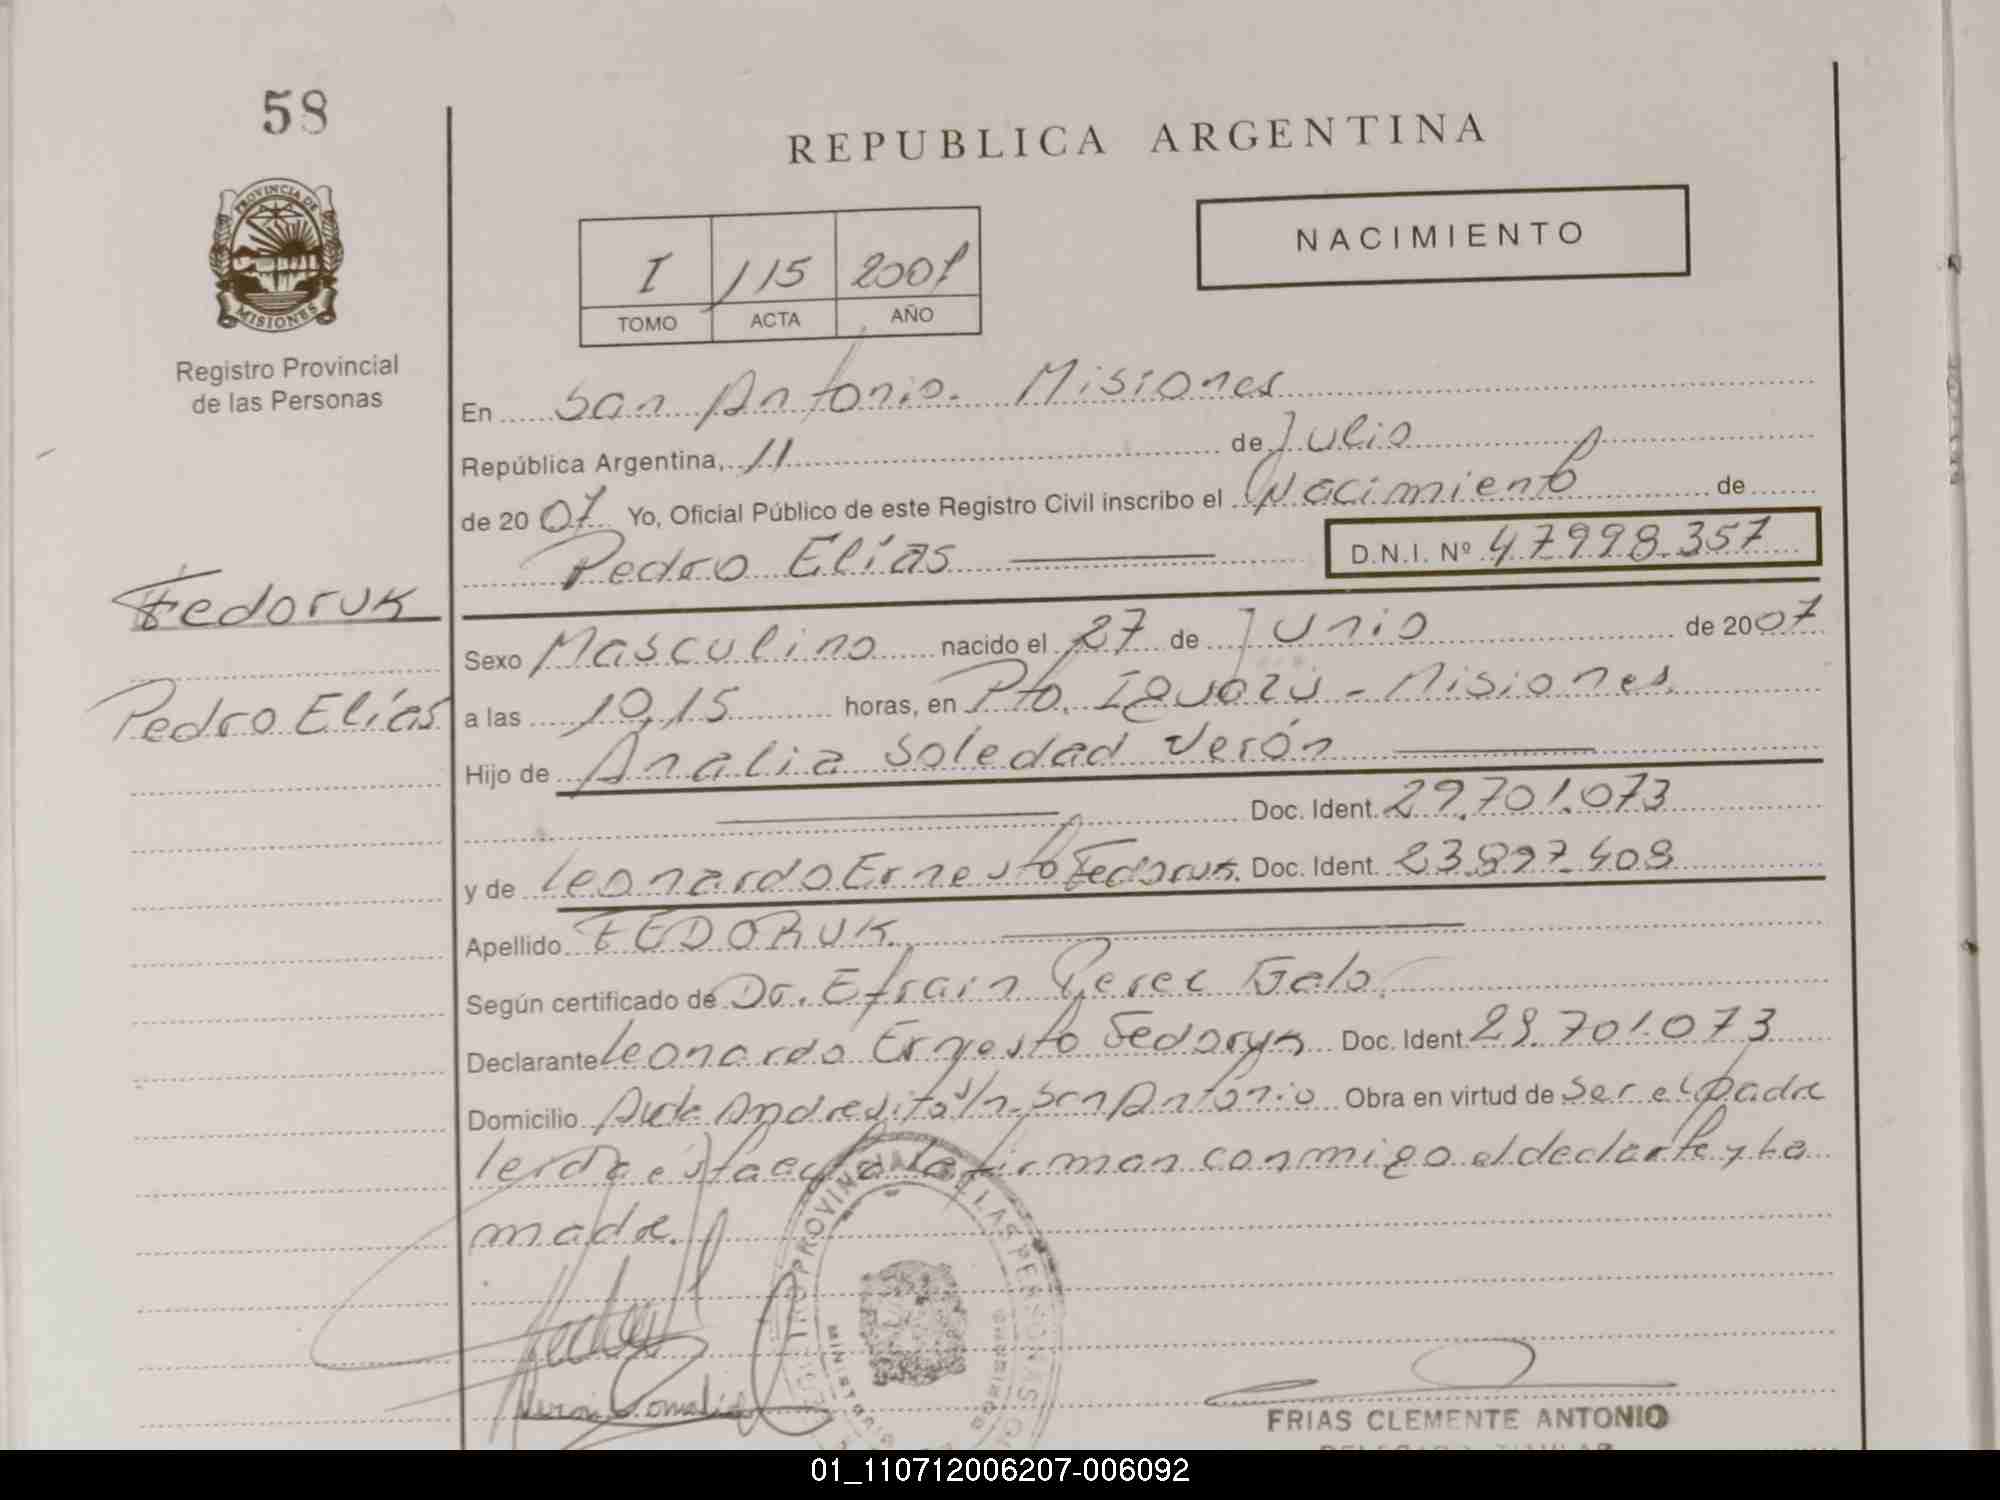 58
REPUBLICA ARGENTINA
PROVINCIA DE
MISIONES
NACIMIENTO
I 115 2007
TOMO ACTA AÑO
Registro Provincial
de las Personas
En San Antonio. Misiones
República Argentina, 11 de Julio
de 2007 Yo, Oficial Público de este Registro Civil inscribo el Nacimiento de
Pedro Elías D.N.I. Nº 47998.357
Fedoruk
Sexo Masculino nacido el 27 de Junio de 2007
Pedro Elías
a las 10,15 horas, en Pto. Iguazú - Misiones
Hijo de Analia Soledad Verón
Doc. Ident. 29.701.073
y de Leonardo Ernesto Fedoruk. Doc. Ident. 23.897.408
Apellido FEDORUK
Según certificado de Dr. Efrain Perez Galo.
Declarante Leonardo Ernesto Fedoruk Doc. Ident. 29.701.073
Domicilio Avda Andresito s/n. San Antonio Obra en virtud de ser el padre
leida esta acta la firman conmigo el declarte y La
madre.
FRIAS CLEMENTE ANTONIO
01_110712006207-006092